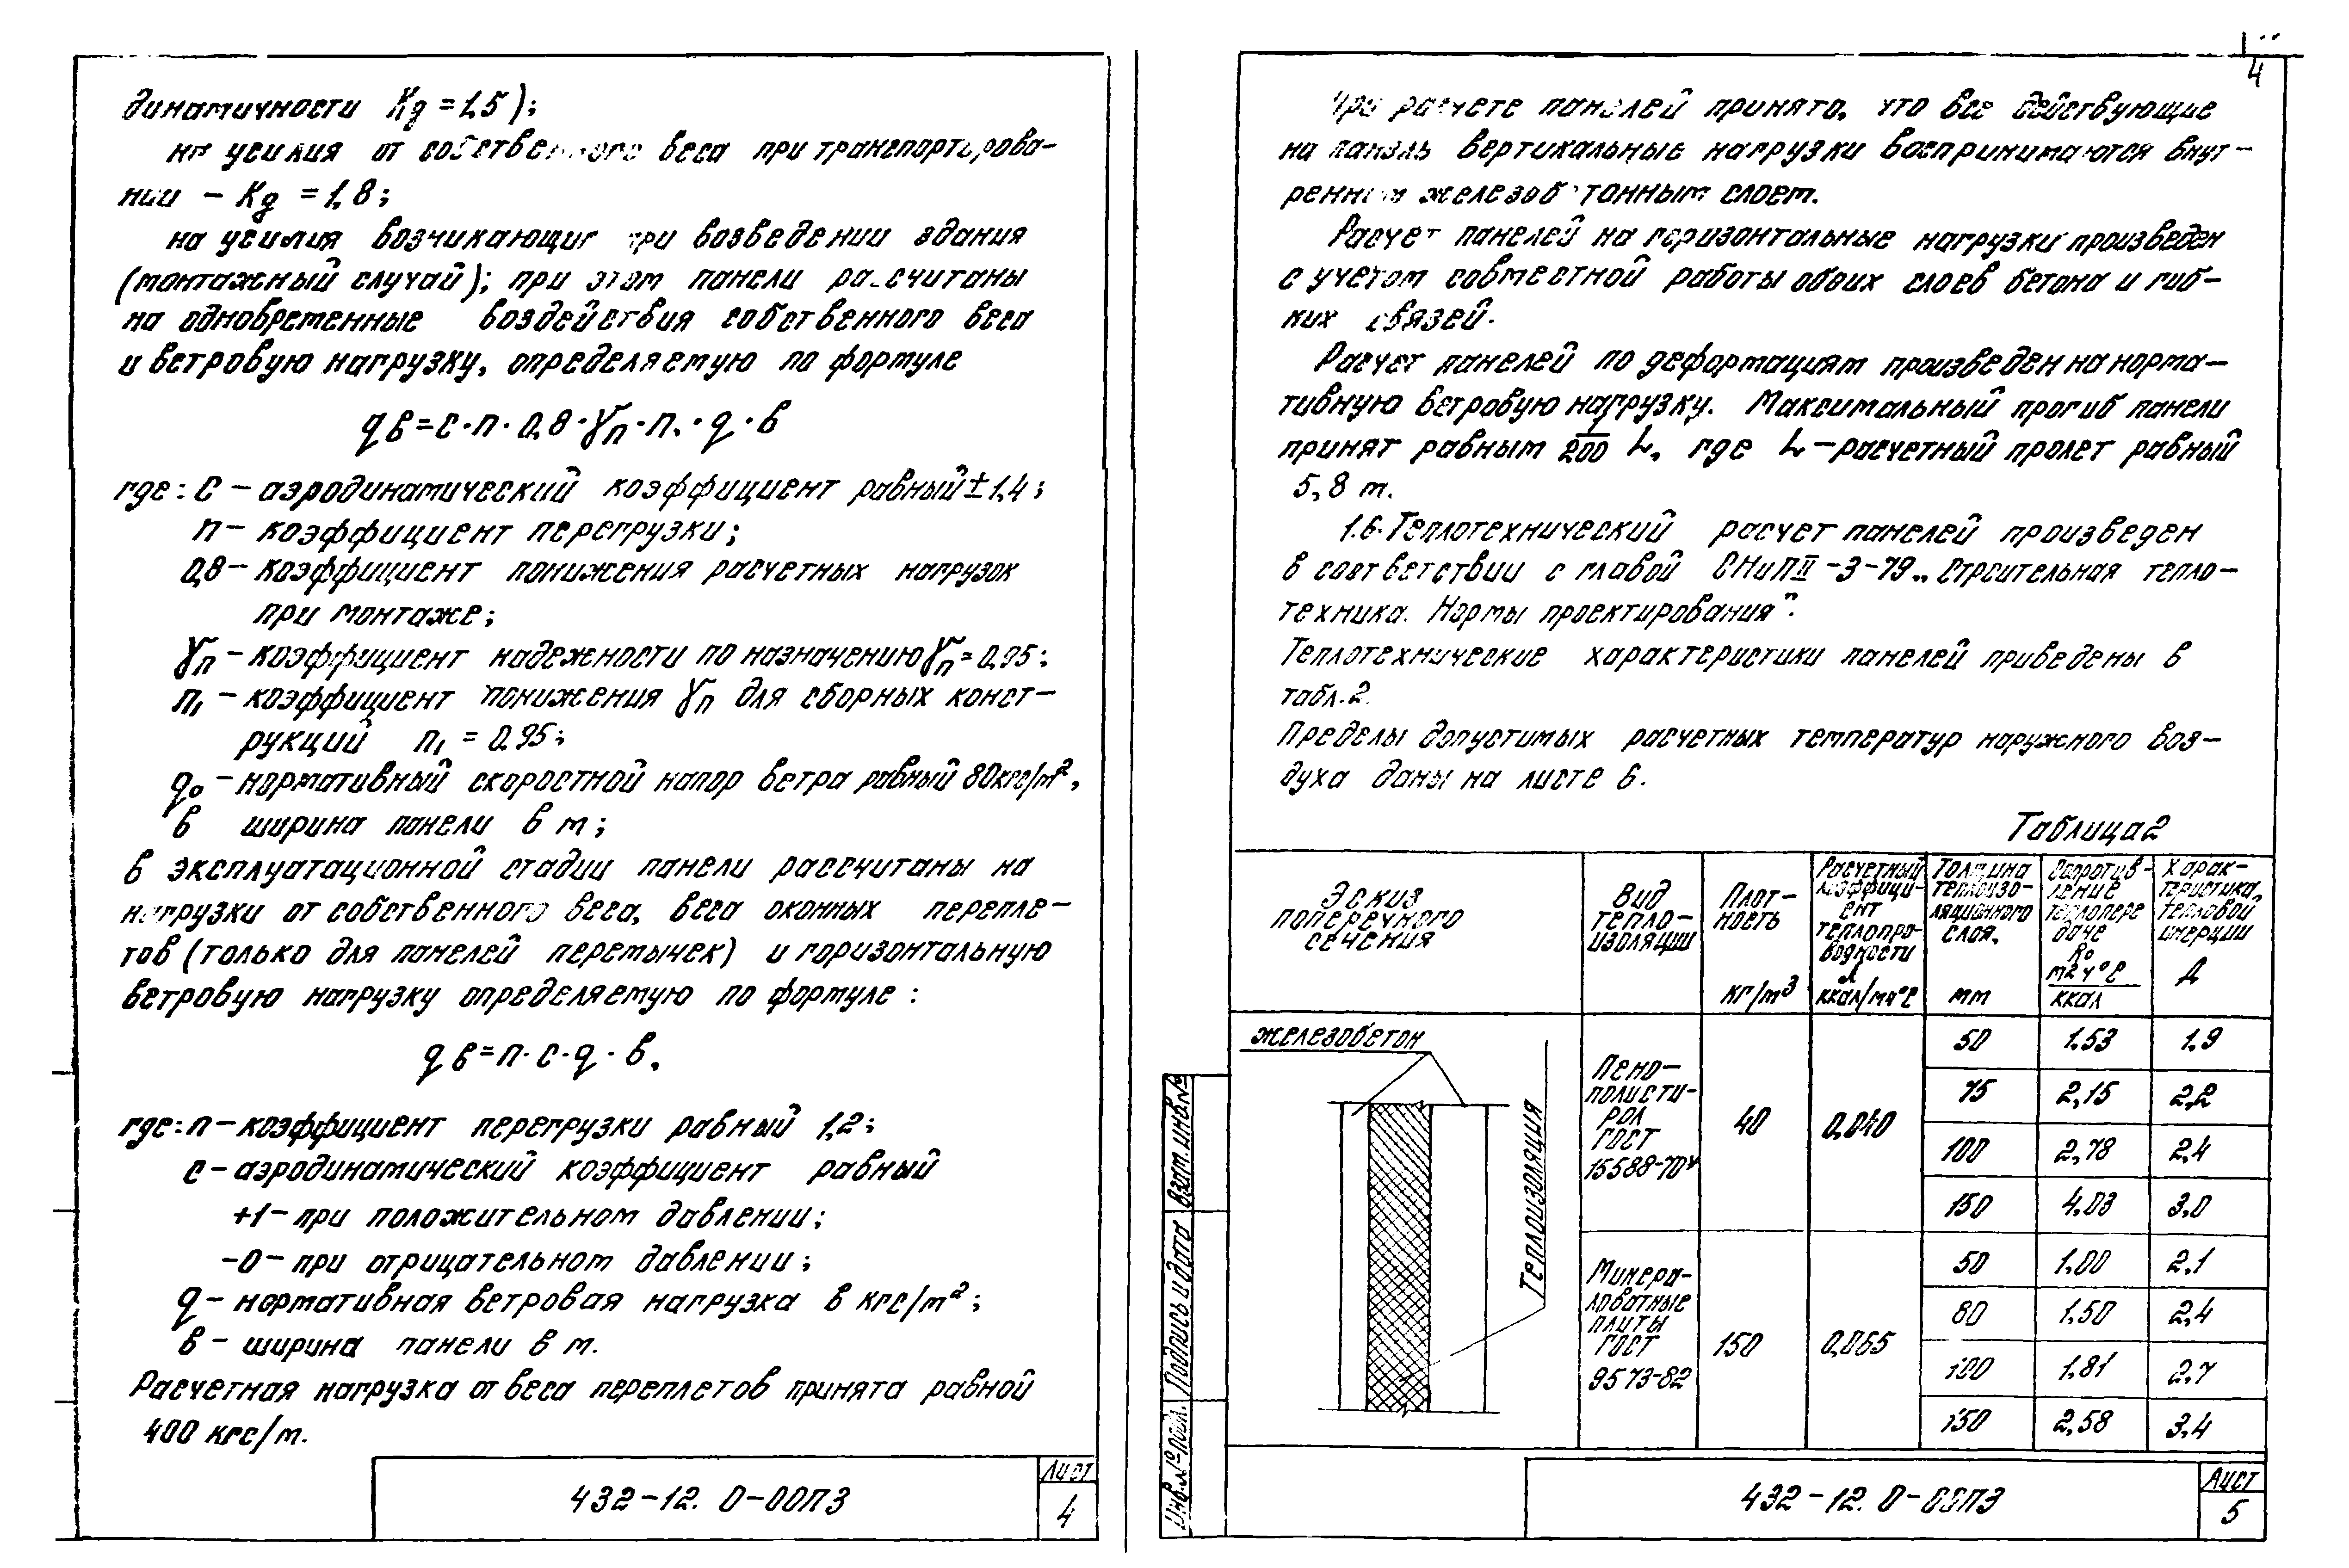 динамичности Kд = 1,5);
на усилия от собственного веса при транспортирова-
нии – Kд = 1,8;
на усилия возникающие при возведении здания
(монтажный случай); при этом панели рассчитаны
на одновременные воздействия собственного веса
и ветровую нагрузку, определяемую по формуле
qв = с·п·0,8·γп·п₁·q·в
где: С – аэродинамический коэффициент равный ±1,4;
п – коэффициент перегрузки;
0,8 – коэффициент понижения расчетных нагрузок
при монтаже;
γп – коэффициент надежности по назначению γп = 0,95;
п₁ – коэффициент понижения γп для сборных конст-
рукций п₁ = 0,95;
q₀ – нормативный скоростной напор ветра равный 80 кгс/м²,
в ширина панели в м;
в эксплуатационной стадии панели рассчитаны на
нагрузки от собственного веса, веса оконных перепле-
тов (только для панелей перемычек) и горизонтальную
ветровую нагрузку определяемую по формуле:
qв = п·с·q·в,
где: п – коэффициент перегрузки равный 1,2;
с – аэродинамический коэффициент равный
+1 – при положительном давлении;
-0 – при отрицательном давлении;
q – нормативная ветровая нагрузка в кгс/м²;
в – ширина панели в м.
Расчетная нагрузка от веса переплетов принята равной
400 кгс/м.
432-12. 0-00ПЗ
Лист
4
4
При расчете панелей принято, что все действующие
на панель вертикальные нагрузки воспринимаются внут-
ренним железобетонным слоем.
Расчет панелей на горизонтальные нагрузки произведен
с учетом совместной работы обоих слоев бетона и гиб-
ких связей.
Расчет панелей по деформациям произведен на норма-
тивную ветровую нагрузку. Максимальный прогиб панели
принят равным 1/200 L, где L – расчетный пролет равный
5,8 м.
1.6. Теплотехнический расчет панелей произведен
в соответствии с главой СНиП II-3-79 „Строительная тепло-
техника. Нормы проектирования".
Теплотехнические характеристики панелей приведены в
табл. 2.
Пределы допустимых расчетных температур наружного воз-
духа даны на листе 6.
Таблица 2
Эскиз
поперечного
сечения
Вид
тепло-
изоляции
Плот-
ность
кг/м³
Расчетный
коэффици-
ент
теплопро-
водности
λ
ккал/мч°С
Толщина
теплоизо-
ляционного
слоя,
мм
Сопротив-
ление
теплопере
даче
R₀
м2ч°С
ккал
Харак-
теристика
тепловой
инерции
Д
железобетон
Теплоизоляция
Пено-
полисти-
рол
ГОСТ
15588-70*
40
0,040
50 1.53 1.9
75 2,15 2,2
100 2,78 2,4
150 4.03 3.0
Минера-
ловатные
плиты
ГОСТ
9573-82
150
0,065
50 1.00 2.1
80 1.50 2,4
100 1,81 2,7
150 2,58 3,4
Взам. инв.№
Подпись и дата
Инв.№ подл.
432-12. 0-00ПЗ
Лист
5